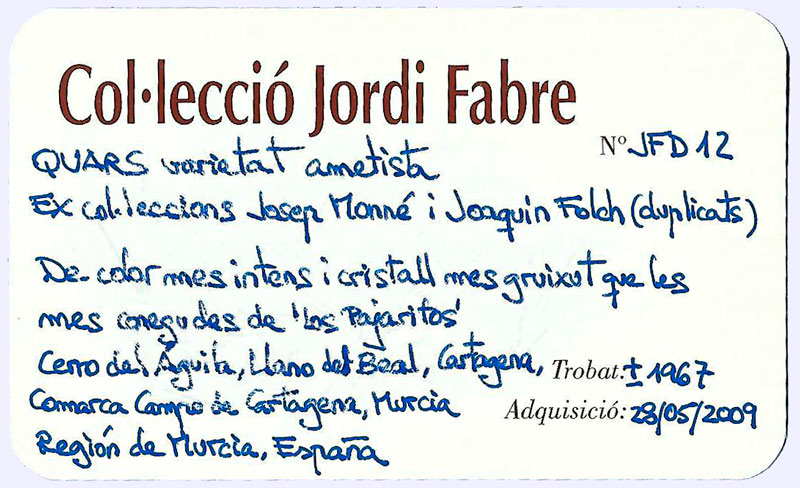 Col·lecció Jordi Fabre
Nº JFD 12
QUARS varietat ametista
Ex col·leccions Josep Monné i Joaquin Folch (duplicats)
De color mes intens i cristall mes gruixut que les
mes conegudes de 'Los Pajaritos'
Cerro del Águila, Llano del Beal, Cartagena,
Trobat: ± 1967
Comarca Campo de Cartagena, Murcia
Adquisició: 28/05/2009
Región de Murcia, España